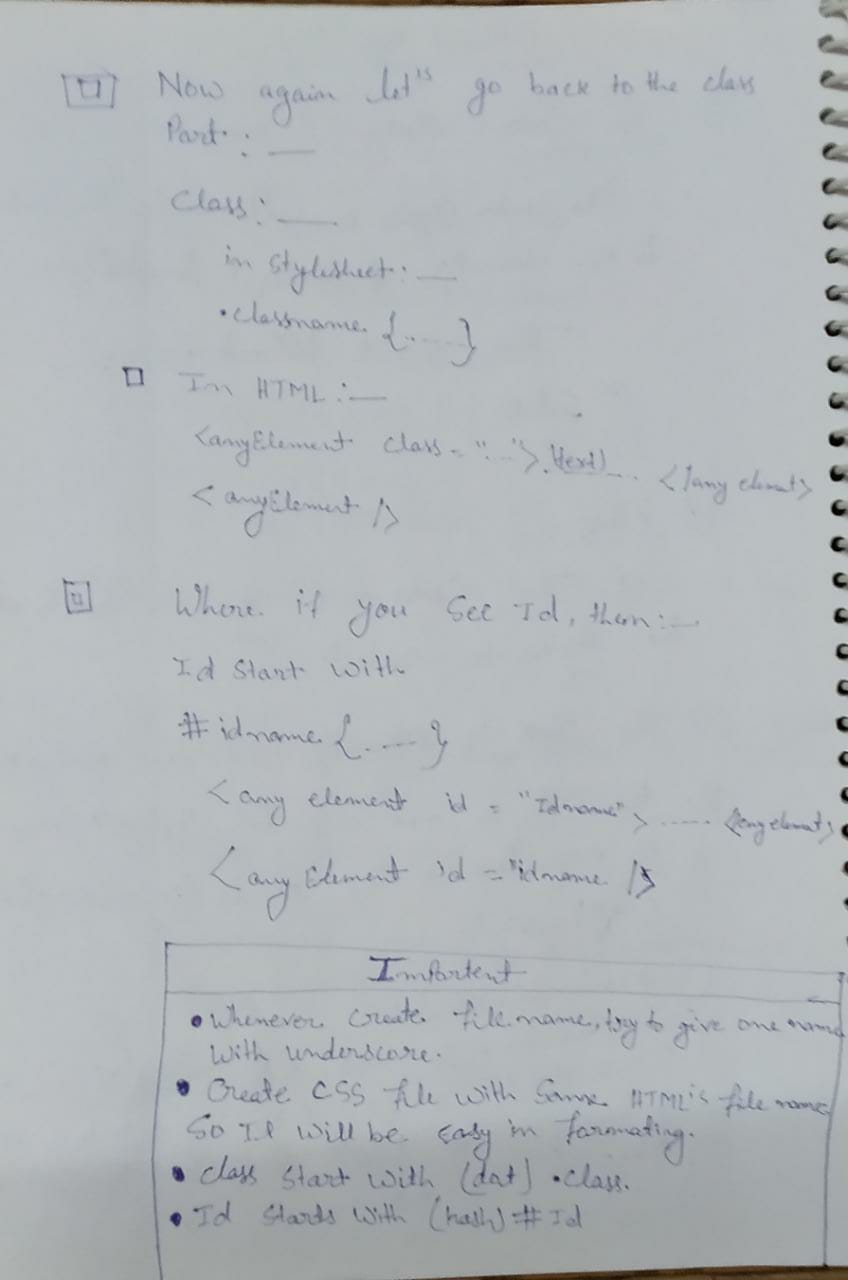 Now again let's go back to the class
Part :__
Class :__
in stylesheet :__
.classname {.....}
In HTML :__
<anyElement class = "....">.(text)..... </any elemat>
<anyElement />
Where if you see Id, then :__
Id start with
# idname {.....}
<any element id = "Idname"> ...... </any elemat>
<any Element id = "idname />
Impartent
• Whenever create file name, try to give one name
with underscore.
• Create CSS file with Same HTML's file name
So It will be easy in farmating.
• class start with (dat) .Class.
• Id starts with (hash) # Id